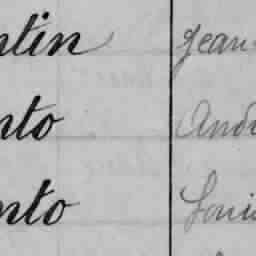 ntin Jean
nto And
nto Loui